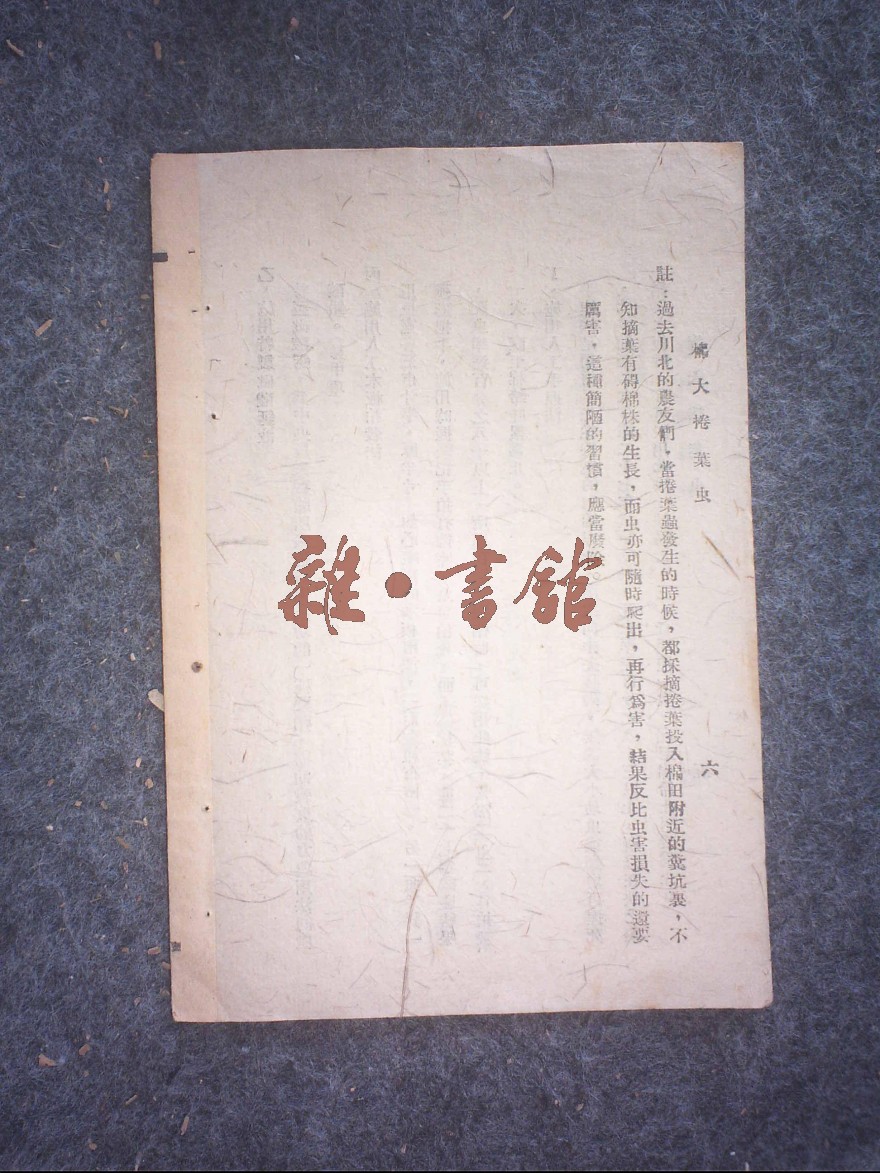 棉大捲葉虫
六
註：過去川北的農友們，當捲葉蟲發生的時候，都採摘捲葉投入棉田附近的糞坑裏，不
知摘葉有碍棉株的生長，而虫亦可隨時爬出，再行爲害，結果反比虫害損失的還要
厲害，這種簡陋的習慣，應當廢除。
雜·書館